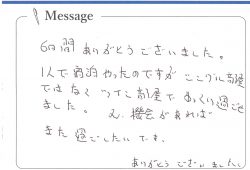 Message
6日間 ありがとうございました。
1人で宿泊だったのですが シングル部屋
ではなく ツイン部屋で ゆっくり過ごせ
ました。 又、機会があれば
また 過ごしたいです。
ありがとう ございました。